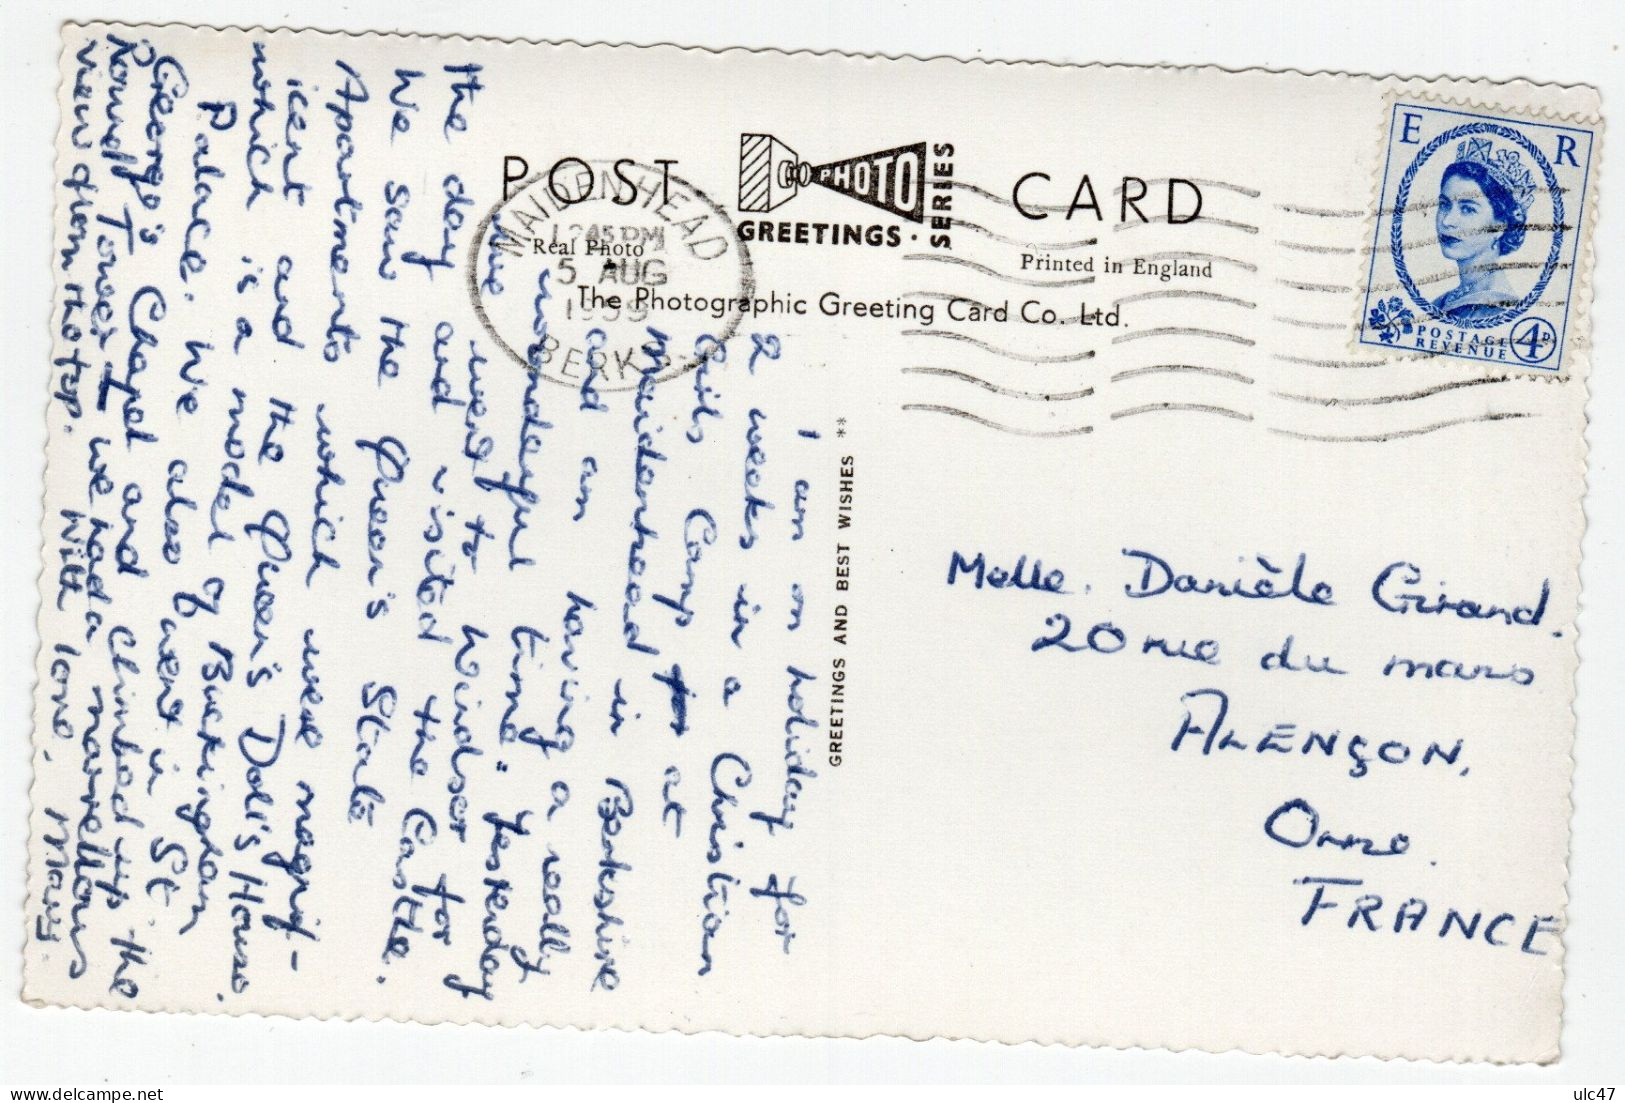 POST CARD
PHOTO
GREETINGS · SERIES
Real Photo
Printed in England
The Photographic Greeting Card Co. Ltd.
MAIDENHEAD
12 45 PM
5 AUG
BERKS
E R
POSTAGE
REVENUE
4D
GREETINGS AND BEST WISHES **
I am on holiday for
2 weeks in a Christian
Girls Camp at
Maidenhead in Berkshire
and am having a really
wonderful time. Yesterday
we went to Windsor for
the day and visited the Castle.
We saw the Queen's State
Apartments which were magnif-
icent and the Queen's Doll's House
which is a model of Buckingham
Palace. We also went in St.
George's Chapel and climbed up the
Round Tower & we had a marvellous
view from the top. With love, Mary.
Melle. Danièle Girard.
20 rue du mans
ALENÇON,
Orne.
FRANCE
ulc47